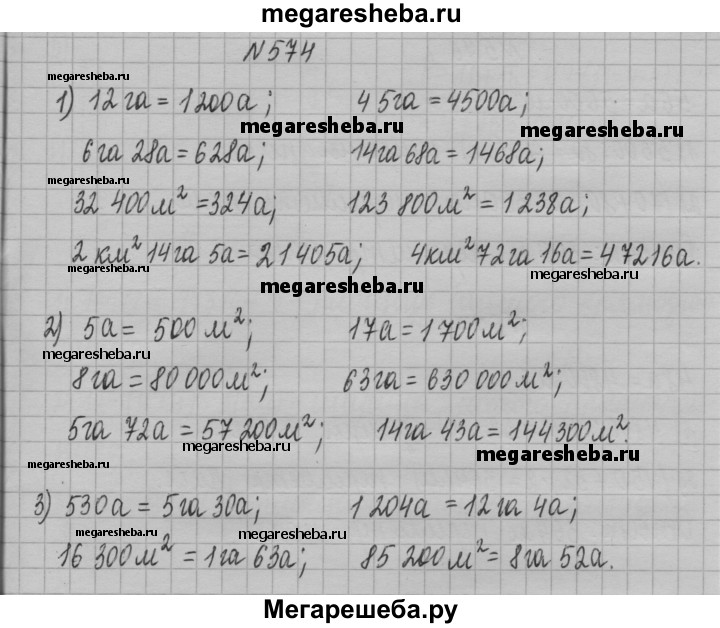 megaresheba.ru
N 574
megaresheba.ru
1) 12 га = 1200а; 45га = 4500а;
megaresheba.ru megaresheba.ru
6га 28а = 628а; 14га 68а = 1468а;
megaresheba.ru
32 400м² = 324а; 123 800м² = 1238а;
2 км² 14га 5а = 21405а; 4км² 72га 16а = 47216а.
megaresheba.ru megaresheba.ru
megaresheba.ru
2) 5а = 500 м²; 17а = 1700м²;
megaresheba.ru
8га = 80 000м²; 63га = 630 000м²;
5га 72а = 57 200м²; 14га 43а = 144300м².
megaresheba.ru megaresheba.ru
3) 530а = 5га 30а; 1 204а = 12 га 4а;
megaresheba.ru megaresheba.ru
16 300м² = 1га 63а; 85 200м² = 8га 52а.
Мегарешеба.ру